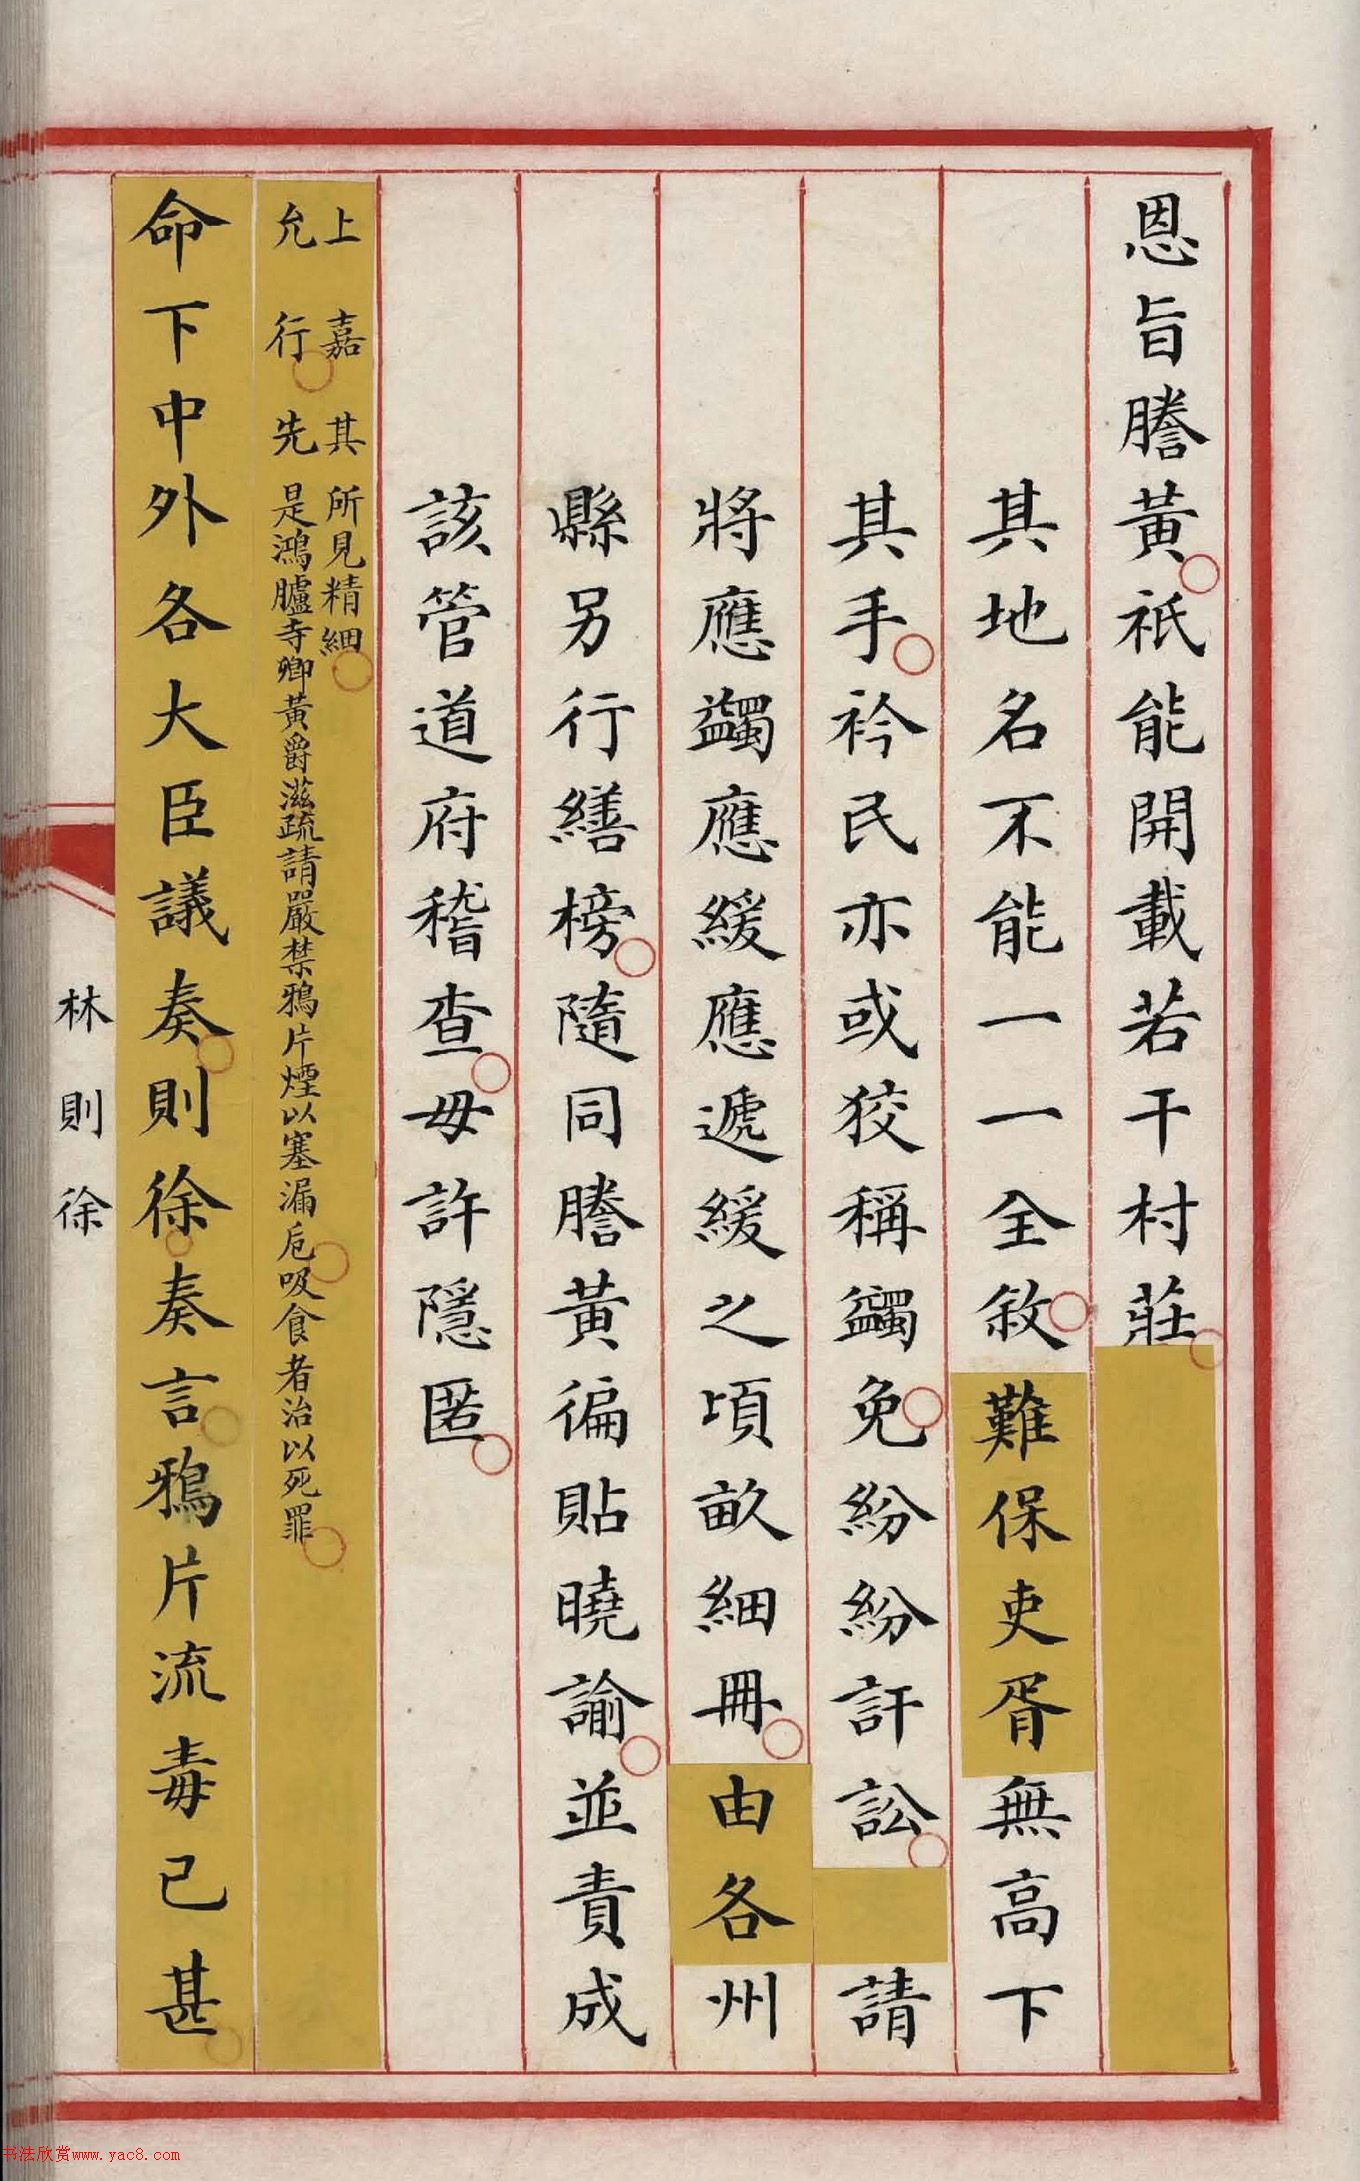 恩旨謄黃祇能開載若干村莊
其地名不能一一全敘難保吏胥無高下
其手衿民亦或狡稱蠲免紛紛訐訟請
將應蠲應緩應遞緩之頃畝細冊由各州
縣另行繕榜隨同謄黃徧貼曉諭並責成
該管道府稽查毋許隱匿
上嘉其所見精細
允行先是鴻臚寺卿黃爵滋疏請嚴禁鴉片煙以塞漏卮吸食者治以死罪
命下中外各大臣議奏則徐奏言鴉片流毒已甚
林則徐
书法欣赏www.yac8.com